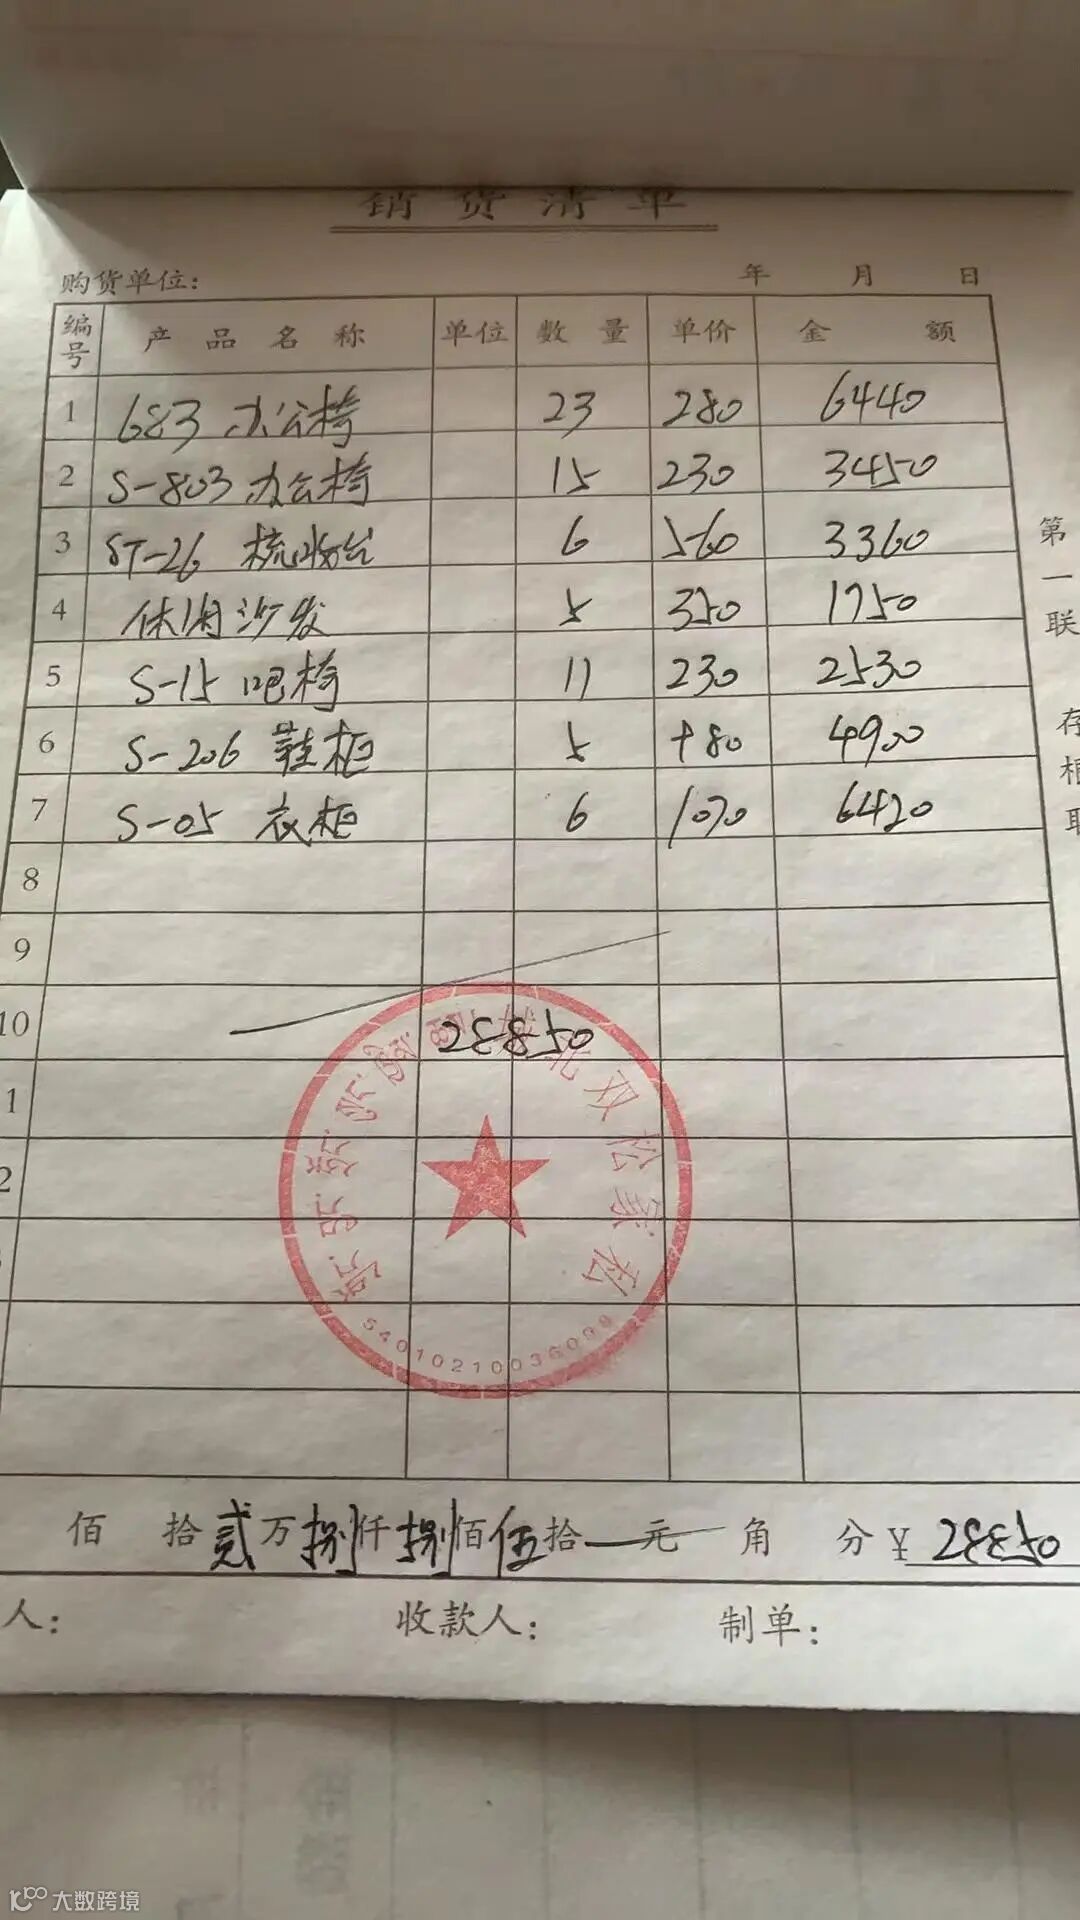 销货清单
购货单位： 年 月 日
编号 产品名称 单位 数量 单价 金额
1 683 办公椅 23 280 6440
2 S-803 办公椅 15 230 3450
3 ST-26 梳妆台 6 560 3360
4 休闲沙发 5 350 1750
5 S-15 吧椅 11 230 2530
6 S-206 鞋柜 5 +80 4900
7 S-05 衣柜 6 1070 6420
8
9
10 28850
1
2
第一联 存根联
北双松家私
54010210036099
佰 拾 贰 万 捌 仟 捌 佰 伍 拾 元 角 分 ¥ 28850
人： 收款人： 制单：
大数跨境